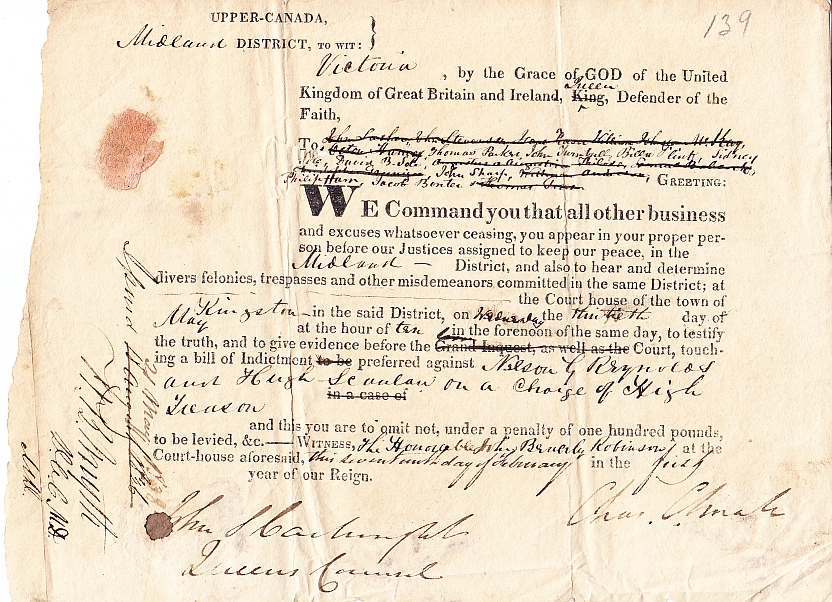 139
UPPER-CANADA,
Midland DISTRICT, TO WIT: }
Victoria , by the Grace of GOD of the United
Queen
Kingdom of Great Britain and Ireland, King, Defender of the
Faith,
To
Thomas Parker, John Turnbull, Billa Flint, Sidney
David B. Sole, John Sharp,
Philip Ham, Jacob Bonter GREETING:
WE Command you that all other business
and excuses whatsoever ceasing, you appear in your proper per-
son before our Justices assigned to keep our peace, in the
Midland District, and also to hear and determine
divers felonies, trespasses and other misdemeanors committed in the same District; at
the Court house of the town of
Kingston in the said District, on Wednesday the thirtieth day of
May at the hour of ten in the forenoon of the same day, to testify
the truth, and to give evidence before the Grand Inquest, as well as the Court, touch-
ing a bill of Indictment to be preferred against Nelson G Reynolds
and Hugh Scanlan on a Charge of High
Treason in a case of
and this you are to omit not, under a penalty of one hundred pounds,
to be levied, &c.— WITNESS, The Honorable John Beverly Robinson at the
Court-house aforesaid, this seventeenth day of February in the first
year of our Reign.
John S Cartwright
Queens Counsel
Chas.
21 May 1838